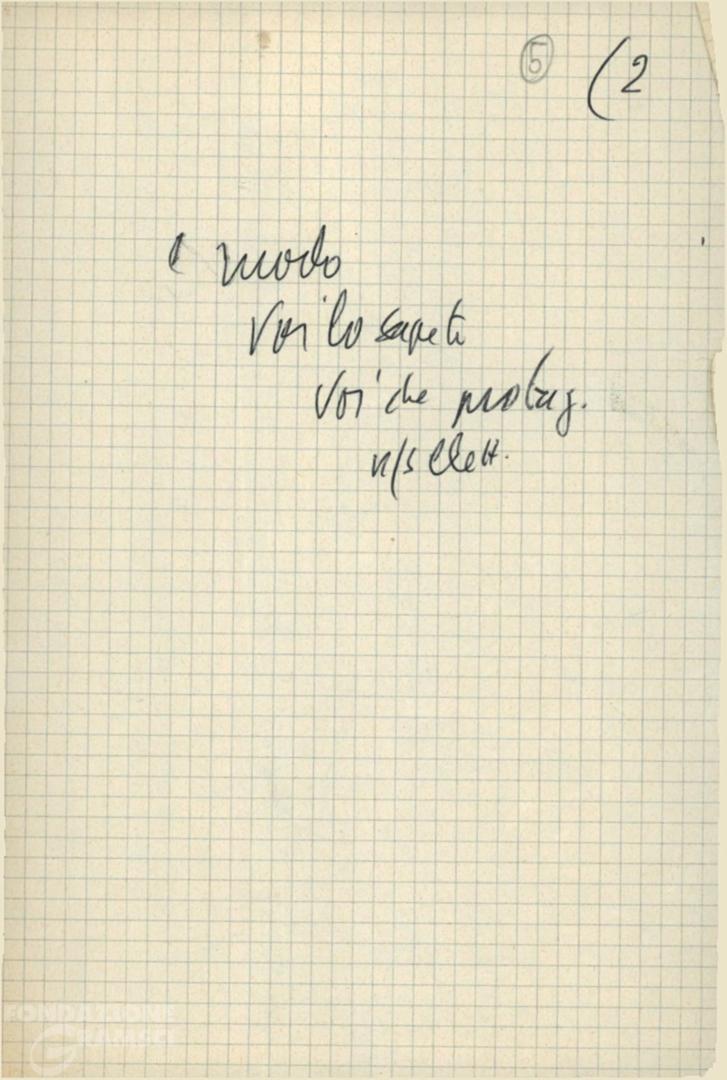 5 (2
e modo
Voi lo sapete
Voi che protag.
n/s elett.
FONDAZIONE
GRAMSCI